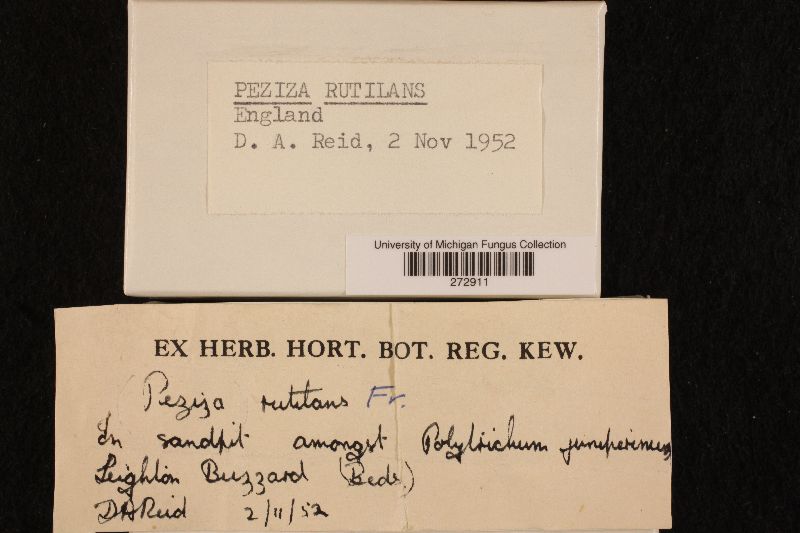 PEZIZA RUTILANS
England
D. A. Reid, 2 Nov 1952
University of Michigan Fungus Collection
272911
EX HERB. HORT. BOT. REG. KEW.
Peziza rutilans Fr.
In sandpit amongst Polytrichum juniperinum
Leighton Buzzard (Beds.)
DAReid 2/11/52